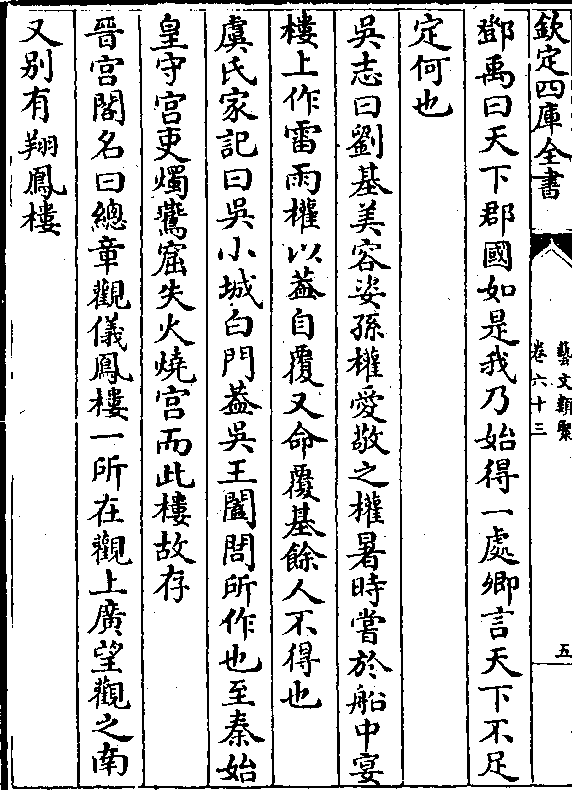 欽定四庫全書
藝文類聚
卷六十三
五
鄧禹曰天下郡國如是我乃始得一處卿言天下不足
定何也
吳志曰劉基美容姿孫權愛敬之權暑時嘗於船中宴
樓上作雷雨權以葢自覆又命覆基餘人不得也
虞氏家記曰吳小城白門葢吳王闔閭所作也至秦始
皇守宫吏燭鷰窟失火燒宫而此樓故存
晉宫閣名曰總章觀儀鳳樓一所在觀上廣望觀之南
又别有翔鳳樓